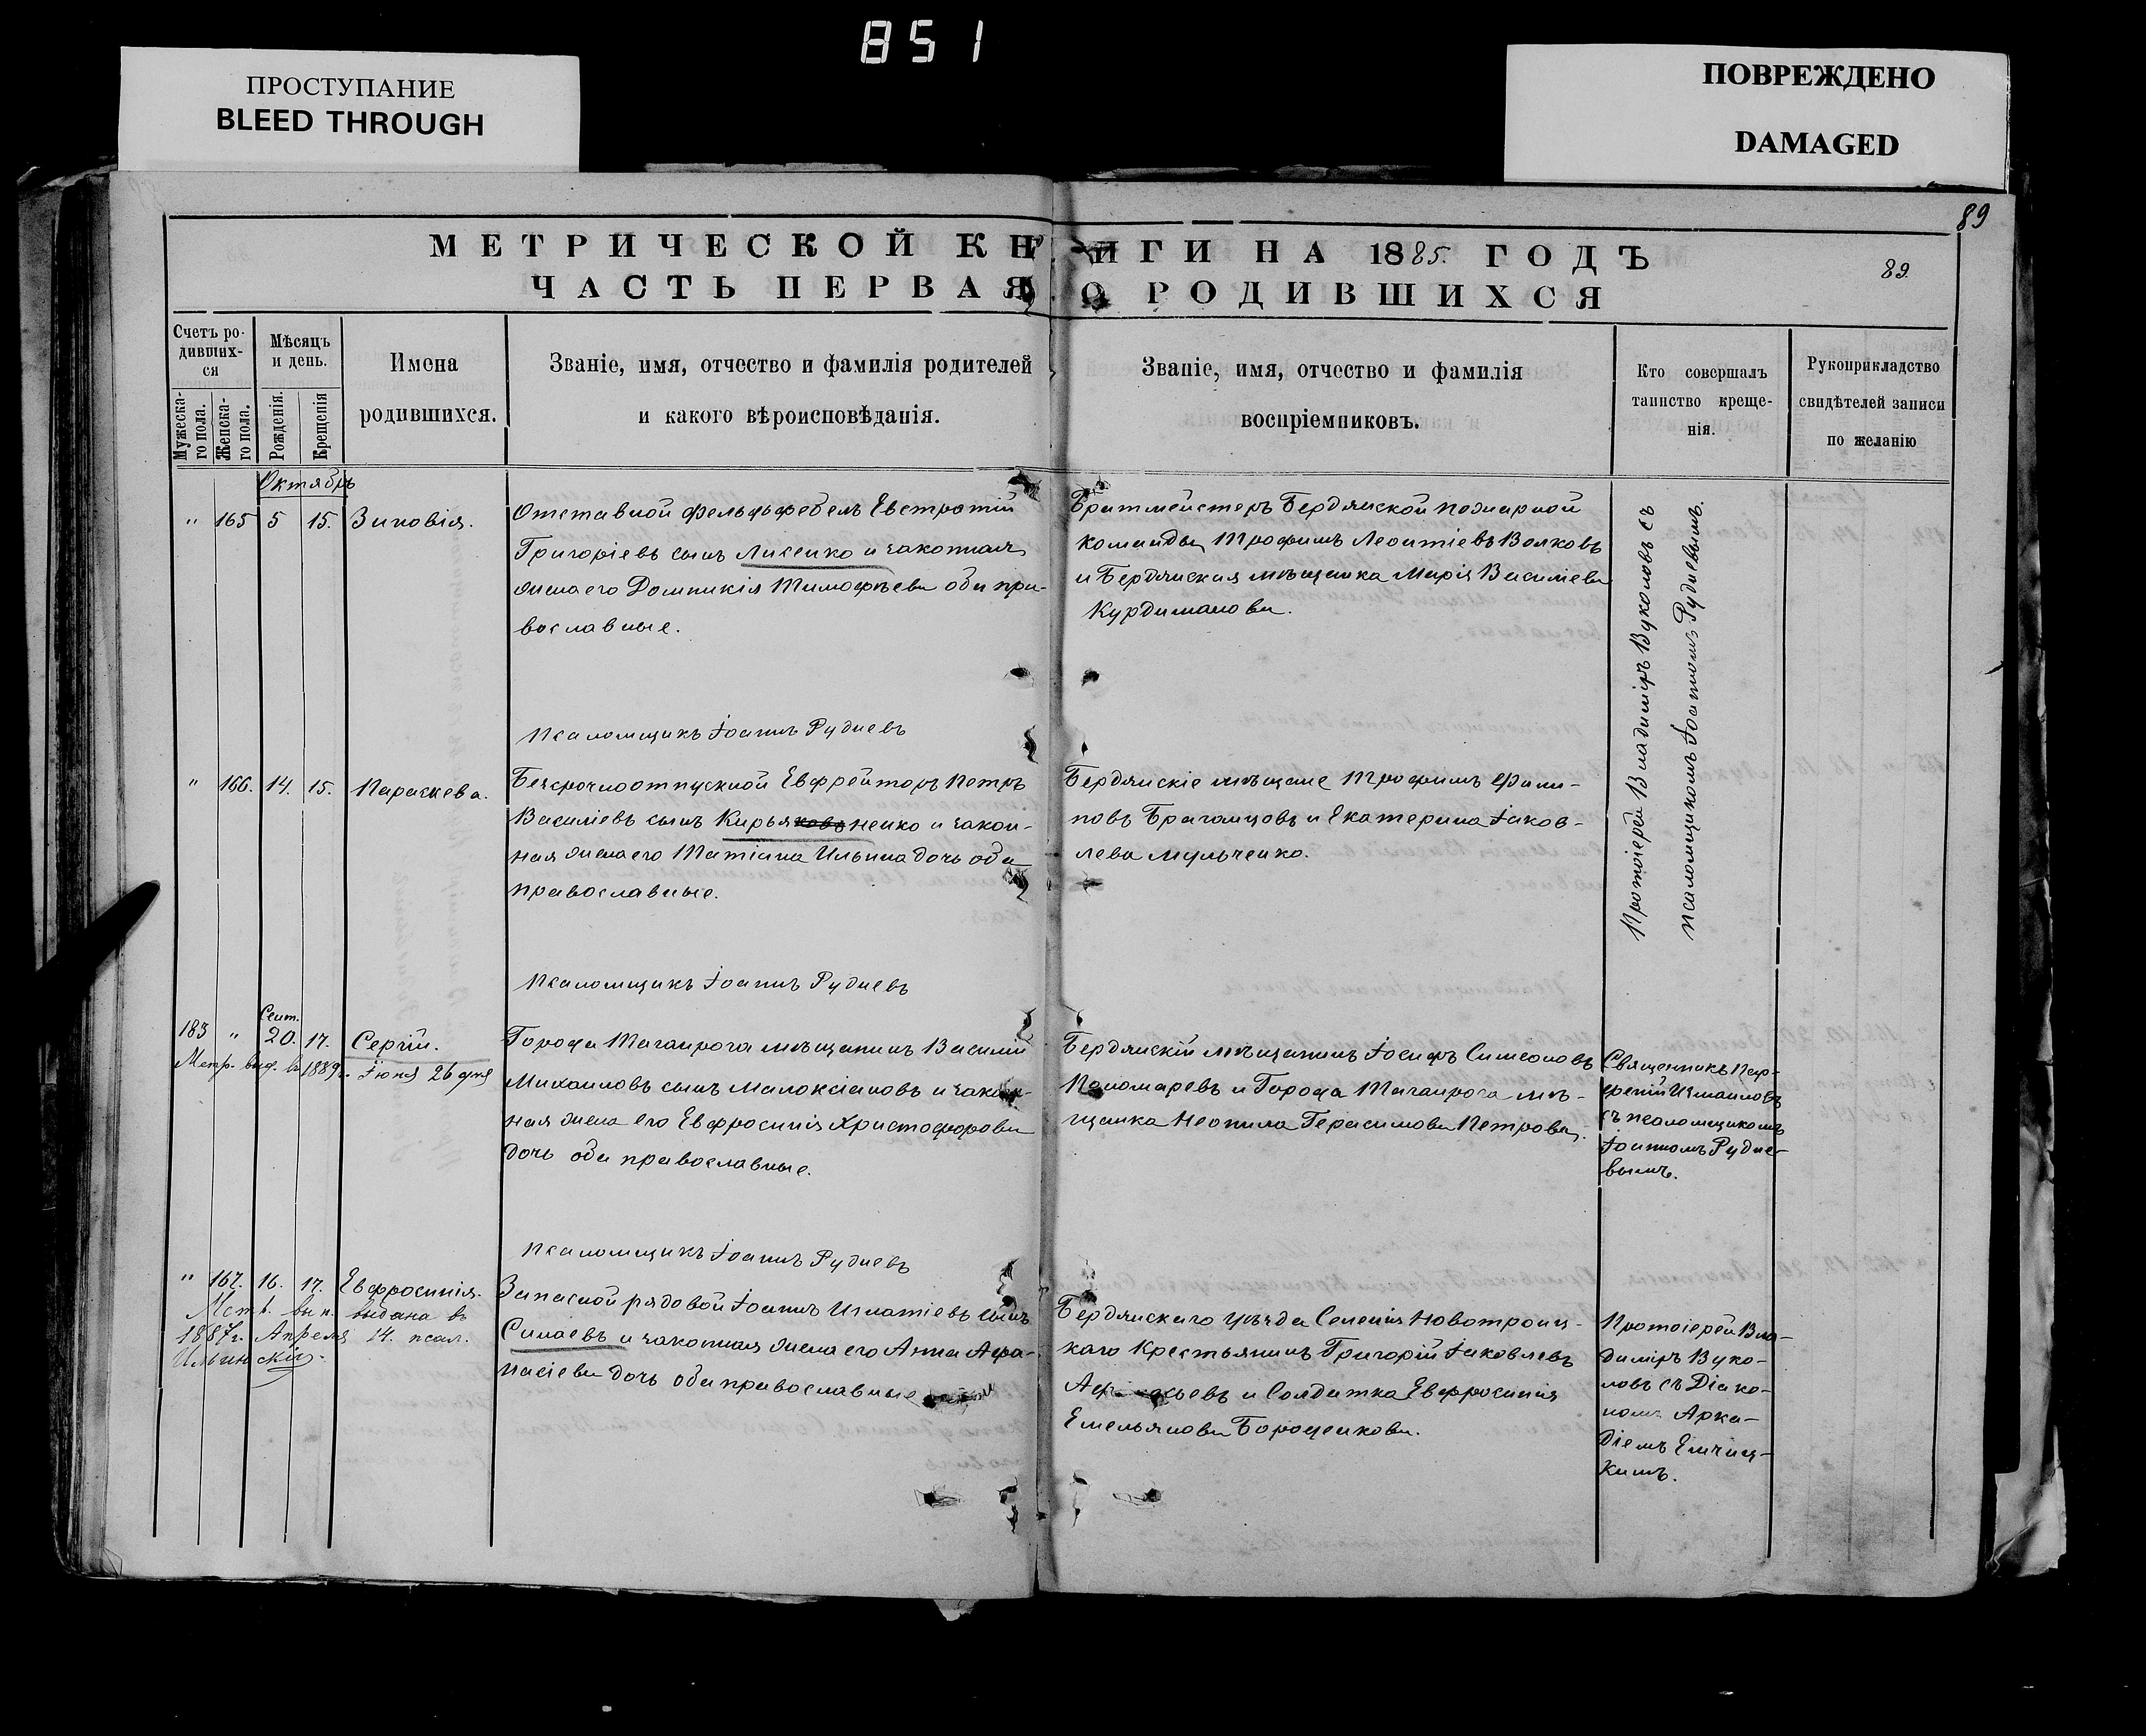 851
ПРОСТУПАНИЕ
BLEED THROUGH
ПОВРЕЖДЕНО
DAMAGED
89
МЕТРИЧЕСКОЙ КНИГИ НА 1885. ГОДЪ
89.
ЧАСТЬ ПЕРВАЯ О РОДИВШИХСЯ
Счетъ ро-
дивших-
ся
Мужеска-
го пола.
Женска-
го пола.
Мѣсяцъ
и день.
Рожденія.
Крещенія
Имена
родившихся.
Званіе, имя, отчество и фамилія родителей
и какого вѣроисповѣданія.
Званіе, имя, отчество и фамилія
воспріемниковъ.
Кто совершалъ
таинство креще-
нія.
Рукоприкладство
свидѣтелей записи
по желанію
Октябрь
" 165 5 15. Зиновія.
Отставной фельдфебель Евстратій
Григоріевъ сынъ Лисенко и законная
жена его Домникія Тимофѣева оба пра-
вославные.
Брантмейстеръ Бердянской пожарной
команды Трофимъ Леонтіевъ Волковъ
и Бердянская мѣщанка Марія Василіева
Курдиманова.
Протоіерей Владиміръ Вуколовъ съ
псаломщикомъ Іоанномъ Рудневымъ.
Псаломщикъ Іоаннъ Рудневъ
" 166. 14. 15. Параскева.
Безсрочноотпускной Евфрейторъ Петръ
Василіевъ сынъ Кирьяковъненко и закон-
ная жена его Татіана Ильина дочь оба
православные.
Бердянскіе мѣщане Трофимъ Филип-
повъ Браганцовъ и Екатерина Іаков-
лева Мульченко.
Псаломщикъ Іоаннъ Рудневъ
Сент.
183 " 20. 17. Сергій.
Метр. выд. въ 1889г. Іюня 26 дня
Города Таганрога мѣщанинъ Василій
Михаиловъ сынъ Малоксіановъ и закон-
ная жена его Евфросинія Христофорова
дочь оба православные.
Бердянскій мѣщанинъ Іосифъ Симеоновъ
Пономаревъ и Города Таганрога мѣ-
щанка Неонила Герасимова Петрова.
Священникъ Пор-
фирій Измаиловъ
съ псаломщикомъ
Іоанномъ Рудне-
вымъ.
Псаломщикъ Іоаннъ Рудневъ
" 167. 16. 17. Евфросинія.
Метр. вып. выдана въ
1887г. Апреля 14. псал.
Ильинскій.
Запасной рядовой Іоаннъ Игнатіевъ сынъ
Синаевъ и законная жена его Анна Афа-
насіева дочь оба православные
Бердянскаго уѣзда Селенія Новотроиц-
каго Крестьянинъ Григорій Іаковлевъ
и Солдатка Евфросинія
Емельянова Бороденкова.
Протоіерей Вла-
диміръ Вуко-
ловъ съ Діако-
номъ Арка-
діемъ